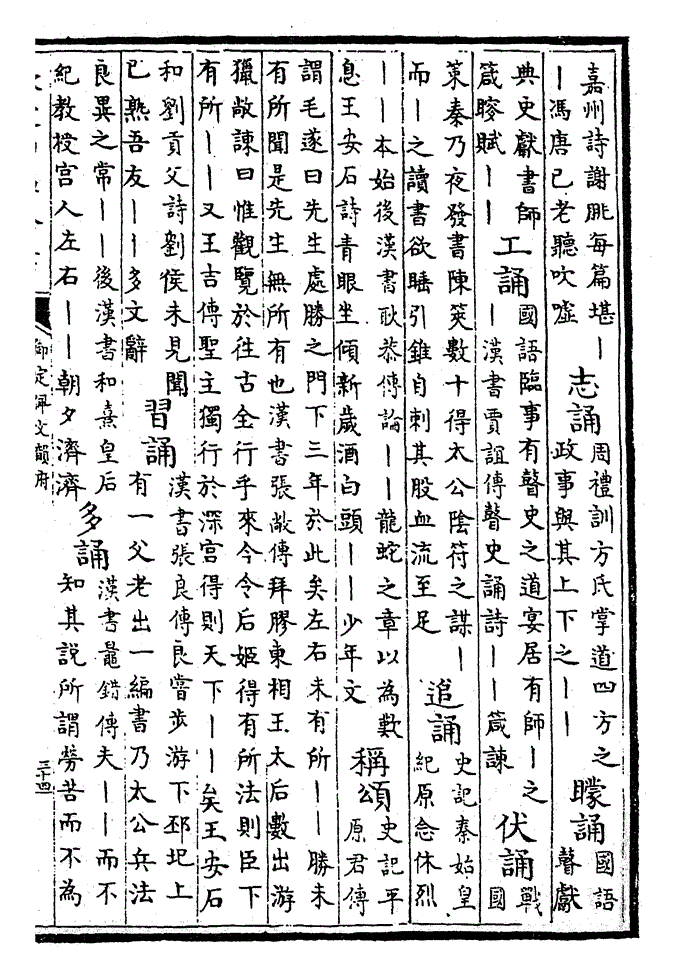 嘉州詩謝朓每篇堪丨
丨馮唐已老聽吹噓
志誦
周禮訓方氏掌道四方之
政事與其上下之丨丨
矇誦
國語
瞽獻
典史獻書師
箴矇賦丨丨
工誦
國語臨事有瞽史之道宴居有師丨之
丨漢書賈誼傳瞽史誦詩丨丨箴諫
伏誦
戰
國
策秦乃夜發書陳篋數十得太公陰符之謀丨
而丨之讀書欲睡引錐自刺其股血流至足
追誦
史記秦始皇
紀原念休烈
丨丨本始後漢書耿恭傳論丨丨龍蛇之章以為數
息王安石詩青眼坐傾新歲酒白頭丨丨少年文
稱頌
史記平
原君傳
謂毛遂曰先生處勝之門下三年於此矣左右未有所丨丨勝未
有所聞是先生無所有也漢書張敞傳拜膠東相王太后數出游
獵敞諫曰惟觀覽於往古全行乎來今令后姬得有所法則臣下
有所丨丨又王吉傳聖主獨行於深宫得則天下丨丨矣王安石
和劉貢父詩劉侯未見聞
已熟吾友丨丨多文辭
習誦
漢書張良傳良嘗步游下邳圯上
有一父老出一編書乃太公兵法
良異之常丨丨後漢書和熹皇后
紀教授宫人左右丨丨朝夕濟濟
多誦
漢書鼂錯傳夫丨丨而不
知其說所謂勞苦而不為
御定佩文韻府
三十四